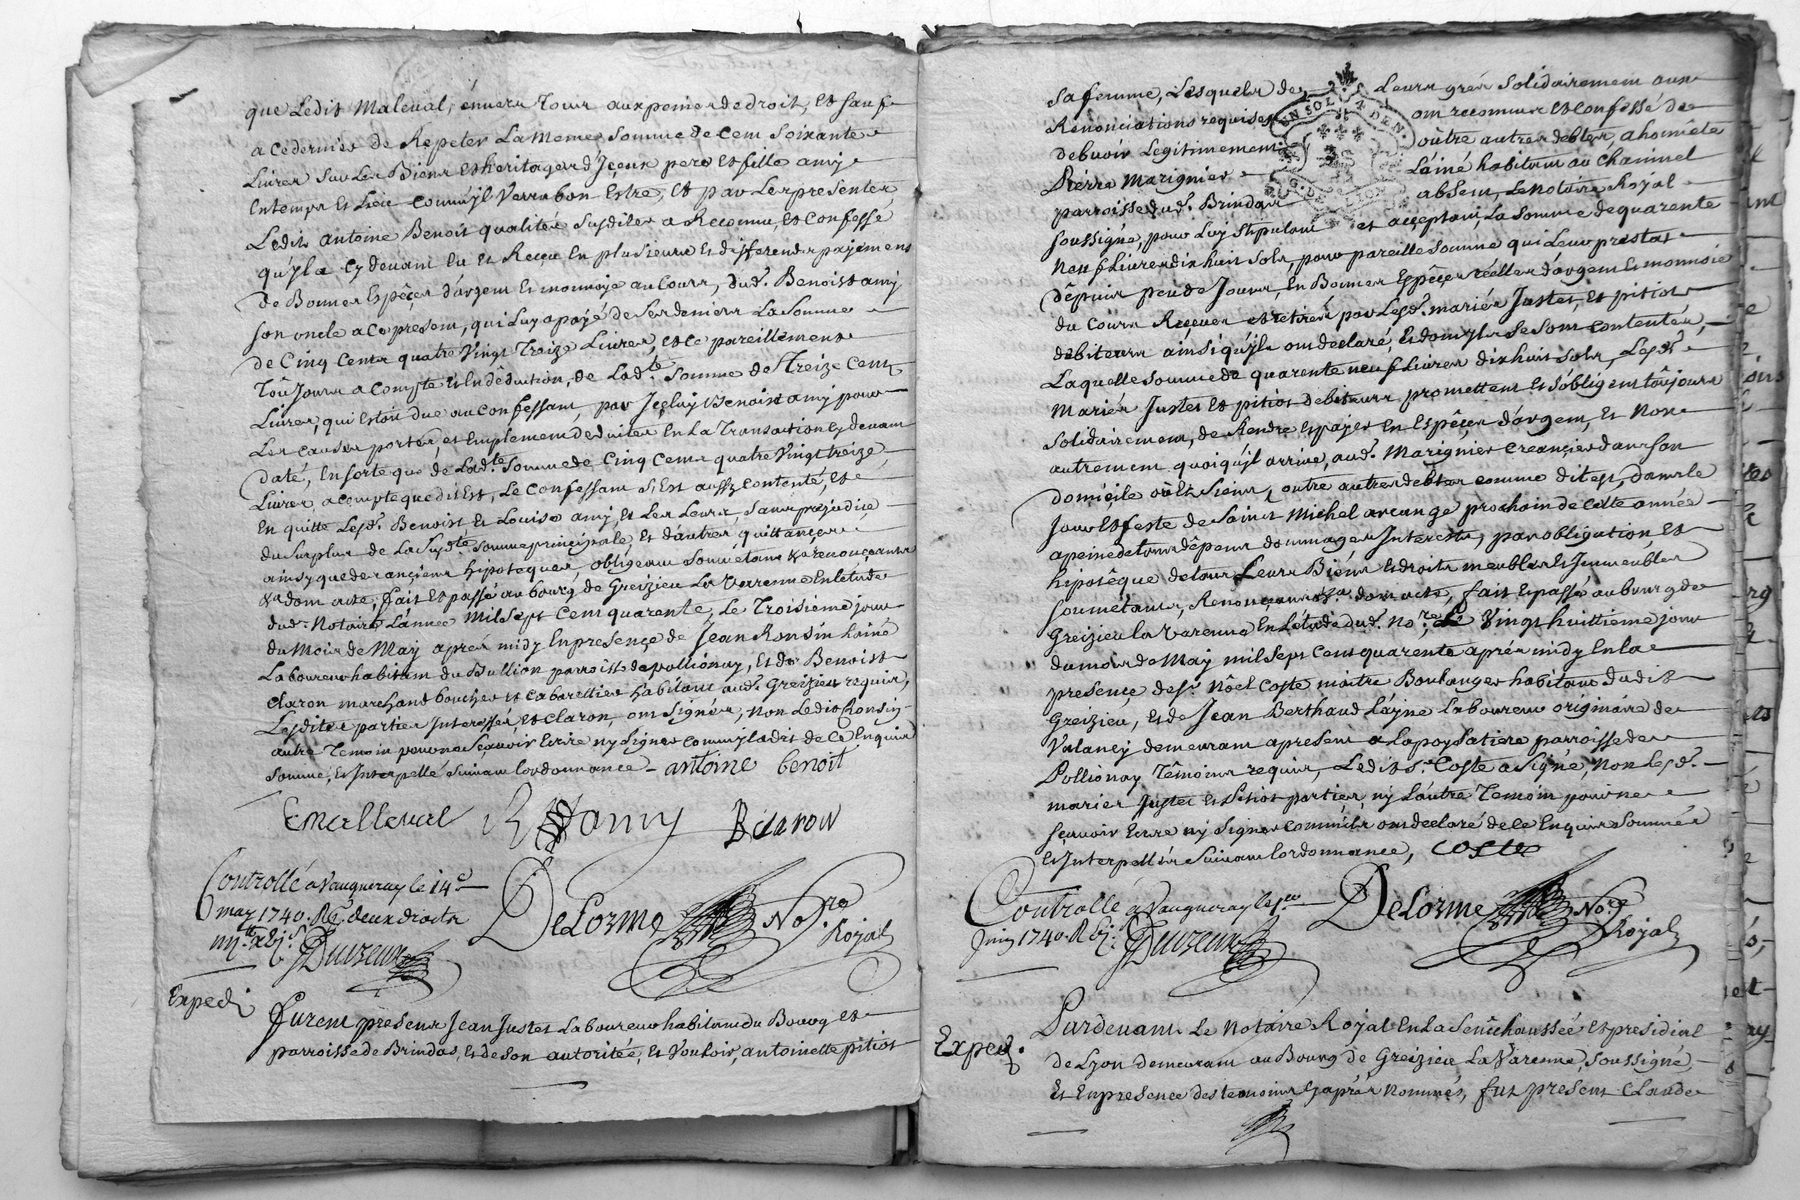 que Ledit Maleval, envers Tous aux peines de droit, et sauf
a ce dernier de Répéter La meme somme de cent soixante
Livres sur Les Biens et heritages d'Iceux pere et fille amy
En temps et Lieu comm'yl verra bon Estre, Et par Les presentes
Ledit antoine Benoit qualités susdites a Reconnu, et Confessé
qu'yl a cy devant Eu et Reçeu En plusieurs et differends payemens
de Bonnes Espêçes d'argent et monnoye au cours, dud. Benoist amy
son oncle a ce present, qui Luy a payé de ses deniers La somme
de Cinq Cents quatre Vingt Treize Livres, et ce pareillement
Toûjours a compte et En déduction, de Lad.te somme de Treize Cent
Livres, qui Estoit due au Confessant, par Iceluy Benoist amy pour
Les causes portés, et Emplement deduites En La Transaction cy devant
daté, En sorte que de Lad.te somme de Cinq Cents quatre Vingt treize
Livres a compte que dit Est, Le Confessant s'Est aussy contenté, et
En quitte Lesd. Benoist et Louise amy, et Les Leurs, sans préjudice
du surplus de La susd.te somme principale, et d'autres quittançes
ainsy que des ançiens hipoteques, obligeant soumétant &a renonçants
&a dont acte, fait et passé au bourg de Greizieu La Varenne En l'étude
dud. Notaire L'année Mil sept Cent quarente, Le Troisième jour
du Mois de May après midy En presençe de Jean Ronsin Lainé
Laboureur habitant du Bullion parroisse de pollionay, et de Benoist
Claron marchand boucher et cabarettier habitant aud. Greizieu requis,
Lesdites parties Interessés et Claron, ont signés, Non Ledit Ronsin
autre Temoin pour ne sçavoir Ecrire ny signer comm'yl a dit de Ce Enquis
sommé, et Interpellé suivant lordonnance - antoine benoit
Emalleval B amy B claron
Controllé a Vaugneray le 14e
may 1740. R. deux droits
Duvzeux
DeLorme No.re
Royal
Expedi
Furent presents Jean Justet Laboureur habitant du Bourg et
parroisse de Brindas, et de son autoritée, et Vouloir, antoinette pitiot
sa femme, Lesquels de Leurs grés solidairement aux
Renonciations requises ont reconnus et confessé de
debvoir Legitimement oûtre autres debtes, a honnête
Pierre Marignier Lainé habitant au Chaninel
parroisse dud. Brindas absent, Le Notaire Royal
soussigné, pour Luy stipulant et acçeptant, La somme de quarente
Neuf Livres dix huit sols, pour pareille somme qui Leur prestat
dêpuis peu de Jours, En Bonnes Espêçes réelles d'argent et monnoie
du cours Reçeues et retirés par Lesd. mariés Justet, et pitiot
debiteurs ainsi qu'yls ont declaré, et dont yls se sont contentés,
Laquelle somme de quarente neuf Livres dix huit sols, Lesd.
Mariés Justet et pitiot debiteurs promettent et s'obligent toûjours
solidairement, de Rendre et payer En Espêçes d'argent, et Non
autrement quoi qu'yl arrive, aud. Marignier creançier dans son
domiçile oû Et siens, outre autres debtes comme dit est, dans le
Jour et feste de saint Michel arcange prochain de cette année
a peine de tous dêpens dommages Interests, par obligation et
hipotêque de tous Leurs Biens et droits meubles et Immeubles
soumétants, Renonçants, &a dont acte, fait et passé au bourg de
Greizieu la Varenne En L'étude dud. No.re Le Vingt huittième jour
du mois de May mil sept Cent quarente après midy En la
presençe de sr. Nôel Coste maitre Boulanger habitant dudit
Greizieu, et de Jean Berthaud L'ayné Laboureur originaire de
Valancy demeurant apresent a La poysatiere parroisse de
Pollionay Têmoins requis, Ledit s. Coste a signé, Non Lesd.
mariés Justet et Pitiot parties, ny L'autre Temoin pour ne
sçavoir Ecrire ny signer comm'ils ont declaré de ce Enquis sommés
et Interpellés suivant lordonnance, coste
Controllé a Vaugneray le 1er
Juin 1740. R
Duvzeux
DeLorme No.re
Royal
Exped.
Pardevant Le Notaire Royal En La Senêchaussée et presidial
de Lyon demeurant au Bourg de Greizieu La Varenne, soussigné,
Et En presence des temoins cy après Nommés, fut present Claude